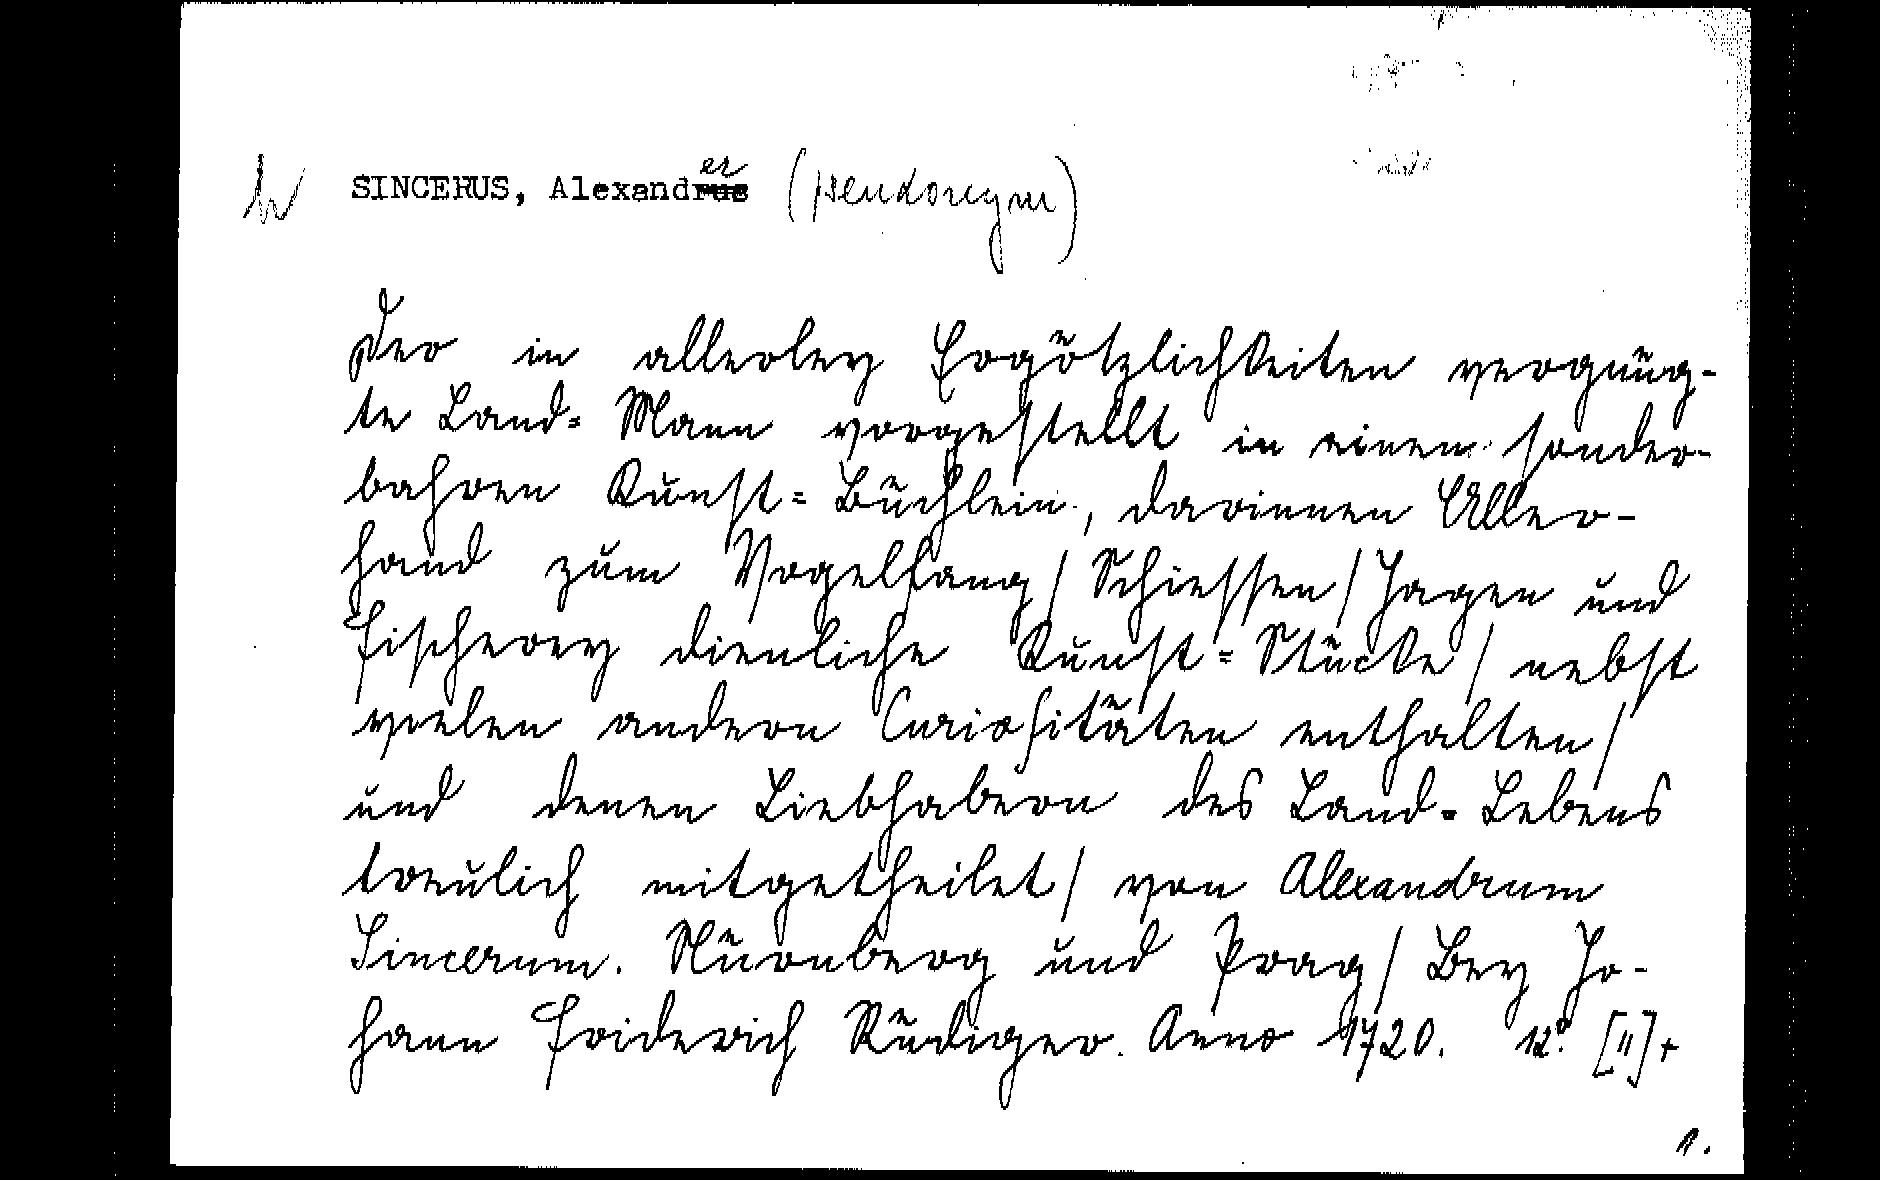 SINCERUS, Alexander (pseudonym)
Der in allerley Ergötzlichkeiten vergnüg-
te Land= Mann vorgestellt in einem sonder-
bahren Kunst= Büchlein, darinnen Aller-
hand zum Vogelfang / Schiessen / Jagen und
Fischerey dienliche Kunst= Stücke / nebst
vielen andern Curiositäten enthalten /
und denen Liebhabern des Land= Lebens
treulich mitgetheilet / von Alexandrum
Sincerum. Nürnberg und Prag / Bey Jo-
hann Friderich Rüdiger. Anno 1720. 12° [11] +
1.